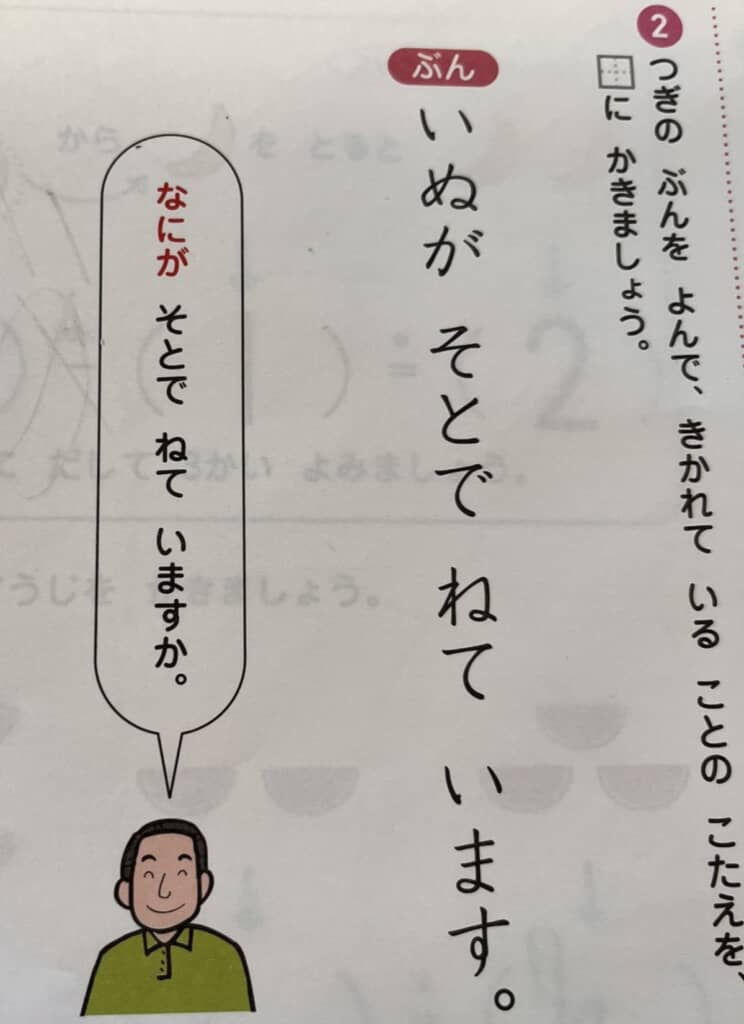 2
つぎの ぶんを よんで、きかれて いる ことの こたえを、
に かきましょう。
ぶん
いぬが そとで ねて います。
なにが そとで ねて いますか。